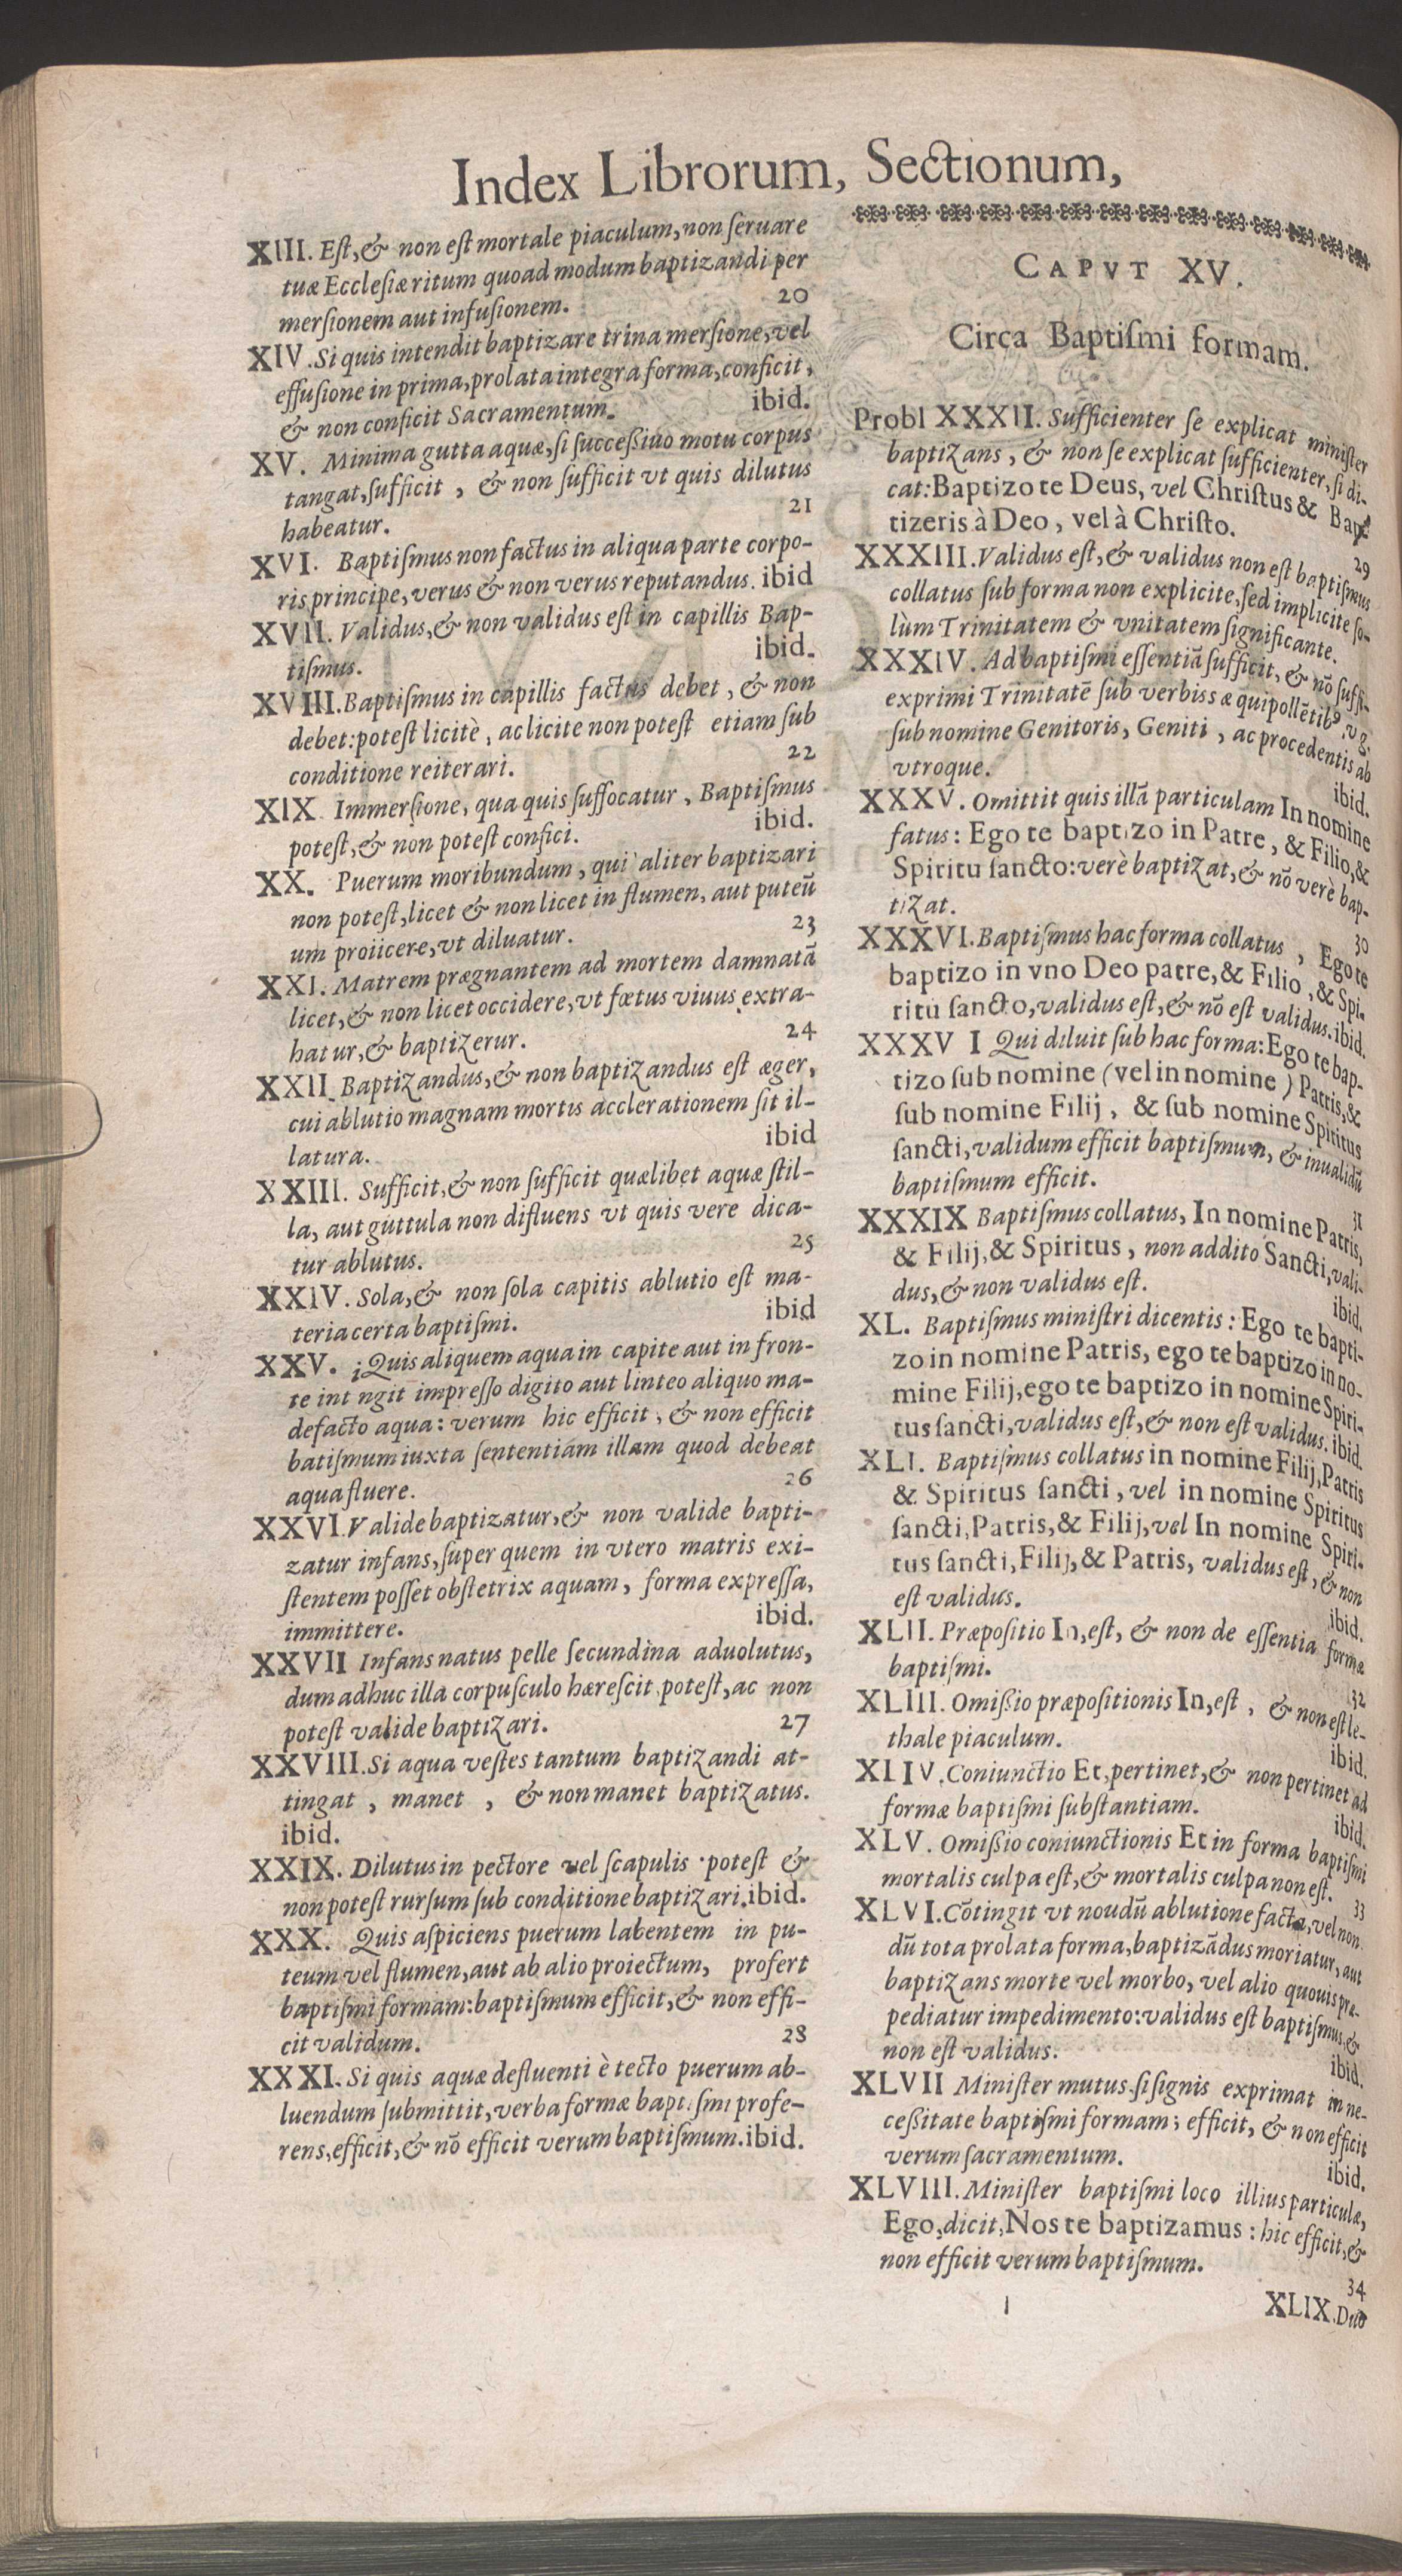 Index Librorum, Sectionum,
XIII. Eſt, & non eſt mortale piaculum, non ſeruare
tuæ Eccleſiæ ritum quoad modum baptizandi per
merſionem aut infuſionem. 20
XIV. Si quis intendit baptizare trina merſione, vel
effuſione in prima, prolata integra forma, conficit,
& non conficit Sacramentum. ibid.
XV. Minima gutta aquæ, ſi ſucceßiuo motu corpus
tangat, ſufficit, & non ſufficit vt quis dilutus
habeatur. 21
XVI. Baptiſmus non factus in aliqua parte corpo-
ris principe, verus & non verus reputandus. ibid
XVII. Validus, & non validus eſt in capillis Bap-
tiſmus. ibid.
XVIII. Baptiſmus in capillis factus debet, & non
debet: poteſt licitè, ac licite non poteſt etiam ſub
conditione reiterari. 22
XIX. Immerſione, qua quis ſuffocatur, Baptiſmus
poteſt, & non poteſt confici. ibid.
XX. Puerum moribundum, qui aliter baptizari
non poteſt, licet & non licet in flumen, aut puteū
um proiicere, vt diluatur. 23
XXI. Matrem prægnantem ad mortem damnatā
licet, & non licet occidere, vt fœtus viuus extra-
hatur, & baptizerur. 24
XXII. Baptizandus, & non baptizandus eſt æger,
cui ablutio magnam mortis acclerationem ſit il-
latura. ibid
XXIII. Sufficit, & non ſufficit quælibet aquæ ſtil-
la, aut guttula non difluens vt quis vere dica-
tur ablutus. 25
XXIV. Sola, & non ſola capitis ablutio eſt ma-
teria certa baptiſmi. ibid
XXV. ¡Quis aliquem aqua in capite aut in fron-
te int ngit impreſſo digito aut linteo aliquo ma-
defacto aqua: verum hic efficit, & non efficit
batiſmum iuxta ſententiam illam quod debeat
aqua fluere. 26
XXVI. Valide baptizatur, & non valide bapti-
zatur infans, ſuper quem in vtero matris exi-
ſtentem poſſet obſtetrix aquam, forma expreſſa,
immittere. ibid.
XXVII Infans natus pelle ſecundina aduolutus,
dum adhuc illa corpuſculo hæreſcit poteſt, ac non
poteſt valide baptizari. 27
XXVIII. Si aqua veſtes tantum baptizandi at-
tingat, manet, & non manet baptizatus.
ibid.
XXIX. Dilutus in pectore vel ſcapulis poteſt &
non poteſt rurſum ſub conditione baptizari. ibid.
XXX. Quis aſpiciens puerum labentem in pu-
teum vel flumen, aut ab alio proiectum, profert
baptiſmi formam: baptiſmum efficit, & non effi-
cit validum. 28
XXXI. Si quis aquæ defluenti è tecto puerum ab-
luendum ſubmittit, verba formæ baptiſmi profe-
rens, efficit, & nō efficit verum baptiſmum. ibid.
CAPVT XV.
Circa Baptiſmi formam.
Probl XXXII. Sufficienter ſe explicat miniſter
baptizans, & non ſe explicat ſufficienter, ſi di-
cat: Baptizo te Deus, vel Chriſtus & Bap-
tizeris à Deo, vel à Chriſto. 29
XXXIII. Validus eſt, & validus non eſt baptiſmus
collatus ſub forma non explicite, ſed implicite ſo-
lùm Trinitatem & vnitatem ſignificante.
XXXIV. Ad baptiſmi eſſentiā ſufficit, & nō ſuffi-
exprimi Trinitatē ſub verbis s æquipollētibꝰ, v g.
ſub nomine Genitoris, Geniti, ac procedentis ab
vtroque. ibid.
XXXV. Omittit quis illā particulam In nomine
fatus: Ego te baptizo in Patre, & Filio, &
Spiritu ſancto: verè baptizat, & nō verè bap-
tizat. 30
XXXVI. Baptiſmus hac forma collatus, Ego te
baptizo in vno Deo patre, & Filio, & Spi-
ritu ſancto, validus eſt, & nō eſt validus. ibid.
XXXV I Qui diluit ſub hac forma: Ego te bap-
tizo ſub nomine (vel in nomine) Patris, &
ſub nomine Filij, & ſub nomine Spiritus
ſancti, validum efficit baptiſmum, & inualidū
baptiſmum efficit. 31
XXXIX Baptiſmus collatus, In nomine Patris,
& Filij, & Spiritus, non addito Sancti, vali-
dus, & non validus eſt. ibid.
XL. Baptiſmus miniſtri dicentis: Ego te bapti-
zo in nomine Patris, ego te baptizo in no-
mine Filij, ego te baptizo in nomine Spiri-
tus ſancti, validus eſt, & non eſt validus. ibid.
XLI. Baptiſmus collatus in nomine Filij, Patris
& Spiritus ſancti, vel in nomine Spiritus
ſancti, Patris, & Filij, vel In nomine Spiri-
tus ſancti, Filij, & Patris, validus eſt, & non
eſt validus. ibid.
XLII. Præpoſitio In, eſt, & non de eſſentia formæ
baptiſmi. 32
XLIII. Omißio præpoſitionis In, eſt, & non eſt le-
thale piaculum. ibid.
XLIV. Coniunctio Et, pertinet, & non pertinet ad
formæ baptiſmi ſubſtantiam. ibid.
XLV. Omißio coniunctionis Et in forma baptiſmi
mortalis culpa eſt, & mortalis culpa non eſt. 33
XLVI. Cōtingit vt noudū ablutione facta, vel non
dū tota prolata forma, baptizādus moriatur, aut
baptizans morte vel morbo, vel alio quouis præ-
pediatur impedimento: validus eſt baptiſmus, &
non eſt validus. ibid.
XLVII Miniſter mutus ſi ſignis exprimat in ne-
ceßitate baptiſmi formam; efficit, & non efficit
verum ſacramentum. ibid.
XLVIII. Miniſter baptiſmi loco illius particulæ,
Ego, dicit, Nos te baptizamus: hic efficit, &
non efficit verum baptiſmum. 34
XLIX. Duo